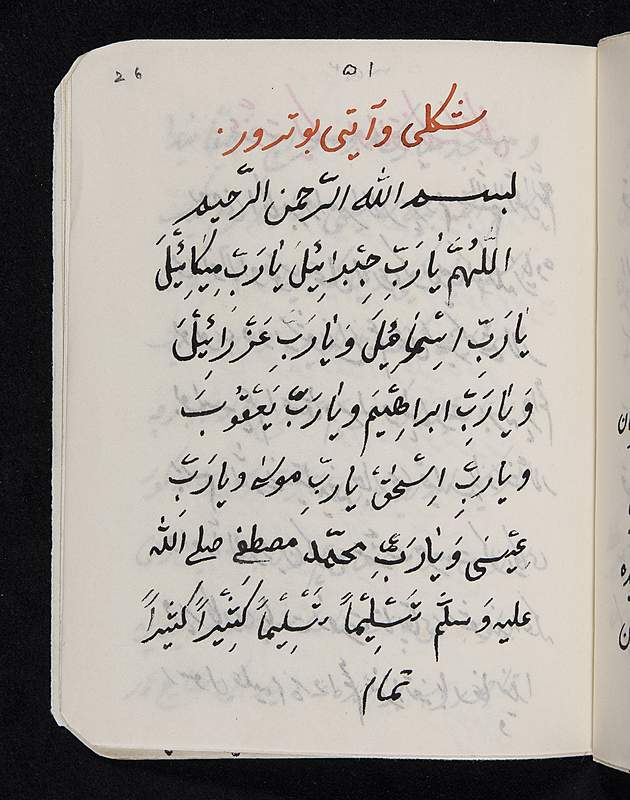 26
٥١
شکلی وآیتی بوتر ور.
بسم الله الرّحمن الرّحیم
اَللّٰهُمَّ یٰارَبِّ جِبْرائِیلَ یٰارَبِّ مِیکٰائِیلَ
یٰارَبِّ اِسْمٰاعِیلَ وَیٰارَبِّ عَزْرَائِیلَ
وَیٰارَبِّ ابراهِیْمَ ویٰارَبِّ یَعْقُوبَ
ویاربِّ اِسْحٰقَ یاربِّ موسٰی ویارَبِّ
عِیْسَی وَیٰارَبِّ محمّد مصطفی صلی الله
علیه وَسلَّم تَسْلِیْماً تَسْلِیْماً کَثِیْراً کَثیْراً
تمام